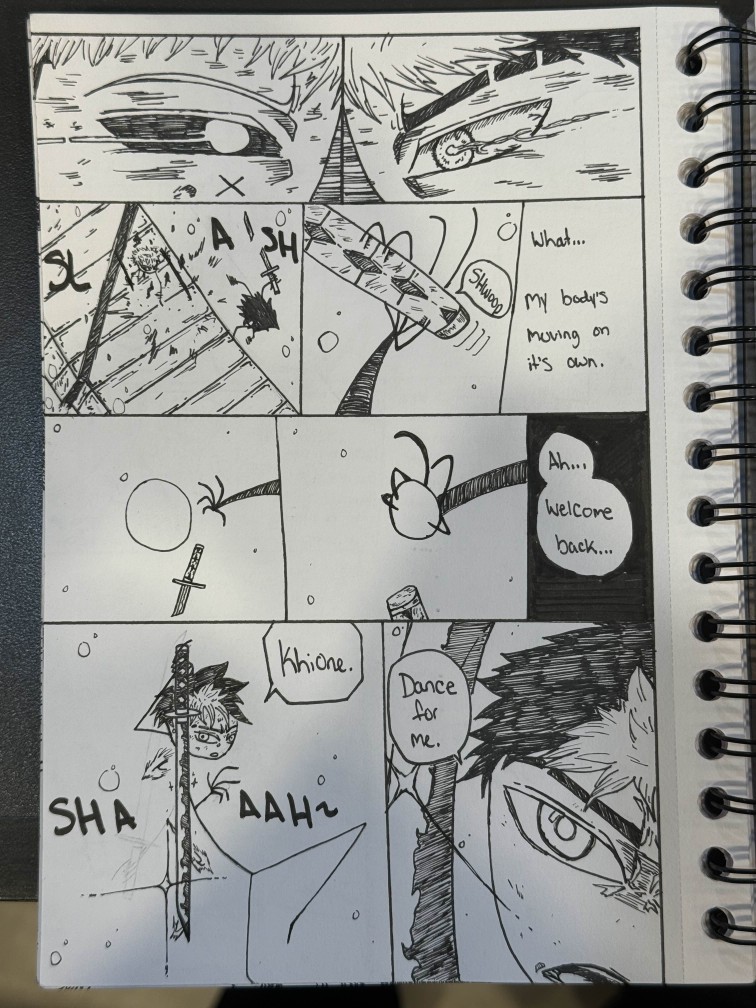 SLASH
SHWOOP
What...
My body's
moving on
it's own.
Ah...
Welcome
back...
Khione.
SHAAAH~
Dance
for
me.